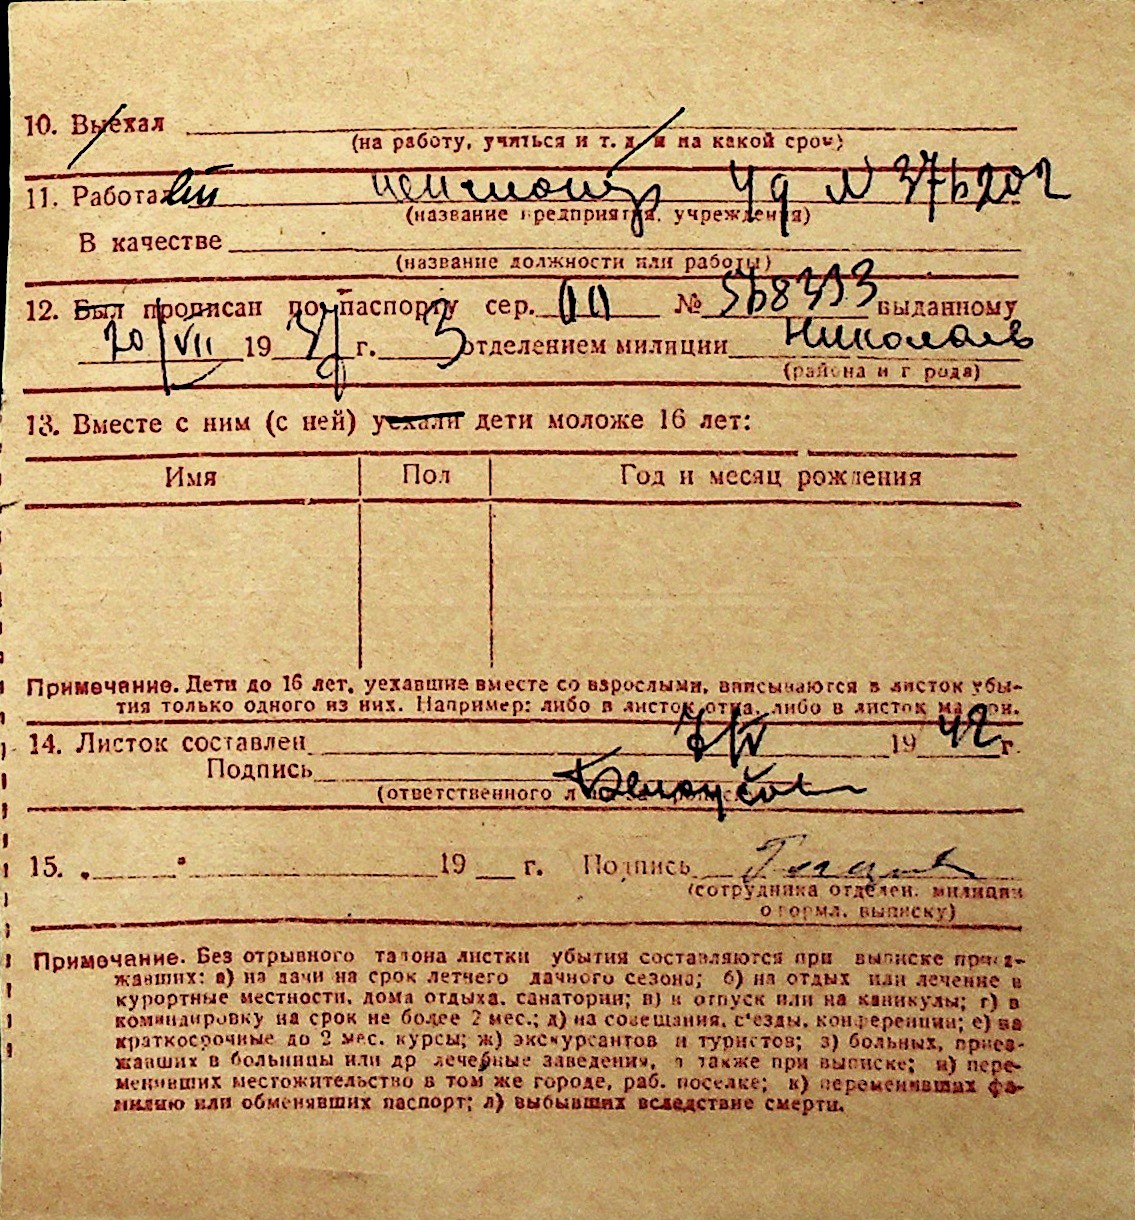 10. Выехал
(на работу, учиться и т. д. и на какой срок)
11. Работал пенсионер уд N 376202
(название предприятия, учреждения)
В качестве
(название должности или работы)
12. Был прописан по паспорту сер. № 568393 выданному
20/VII 1937 г. 3 отделением милиции Николаев
(района и города)
13. Вместе с ним (с ней) уехали дети моложе 16 лет:
Имя Пол Год и месяц рождения
Примечание. Дети до 16 лет, уехавшие вместе со взрослыми, вписываются в листок убы-
тия только одного из них. Например: либо в листок отца, либо в листок матери.
14. Листок составлен 7/IV 1942 г.
Подпись
(ответственного
15. 19 г. Подпись
(сотрудника отделен. милиции
оформл. выписку)
Примечание. Без отрывного талона листки убытия составляются при выписке приез-
жавших: а) на дачи на срок летнего дачного сезона; б) на отдых или лечение в
курортные местности, дома отдыха, санатории; в) в отпуск или на каникулы; г) в
командировку на срок не более 2 мес.; д) на совещания, съезды, конференции; е) на
краткосрочные до 2 мес. курсы; ж) экскурсантов и туристов; з) больных, приез-
жавших в больницы или др лечебные заведения, а также при выписке; и) пере-
менивших местожительство в том же городе, раб. поселке; к) переменивших фа-
милию или обменявших паспорт; л) выбывших вследствие смерти.